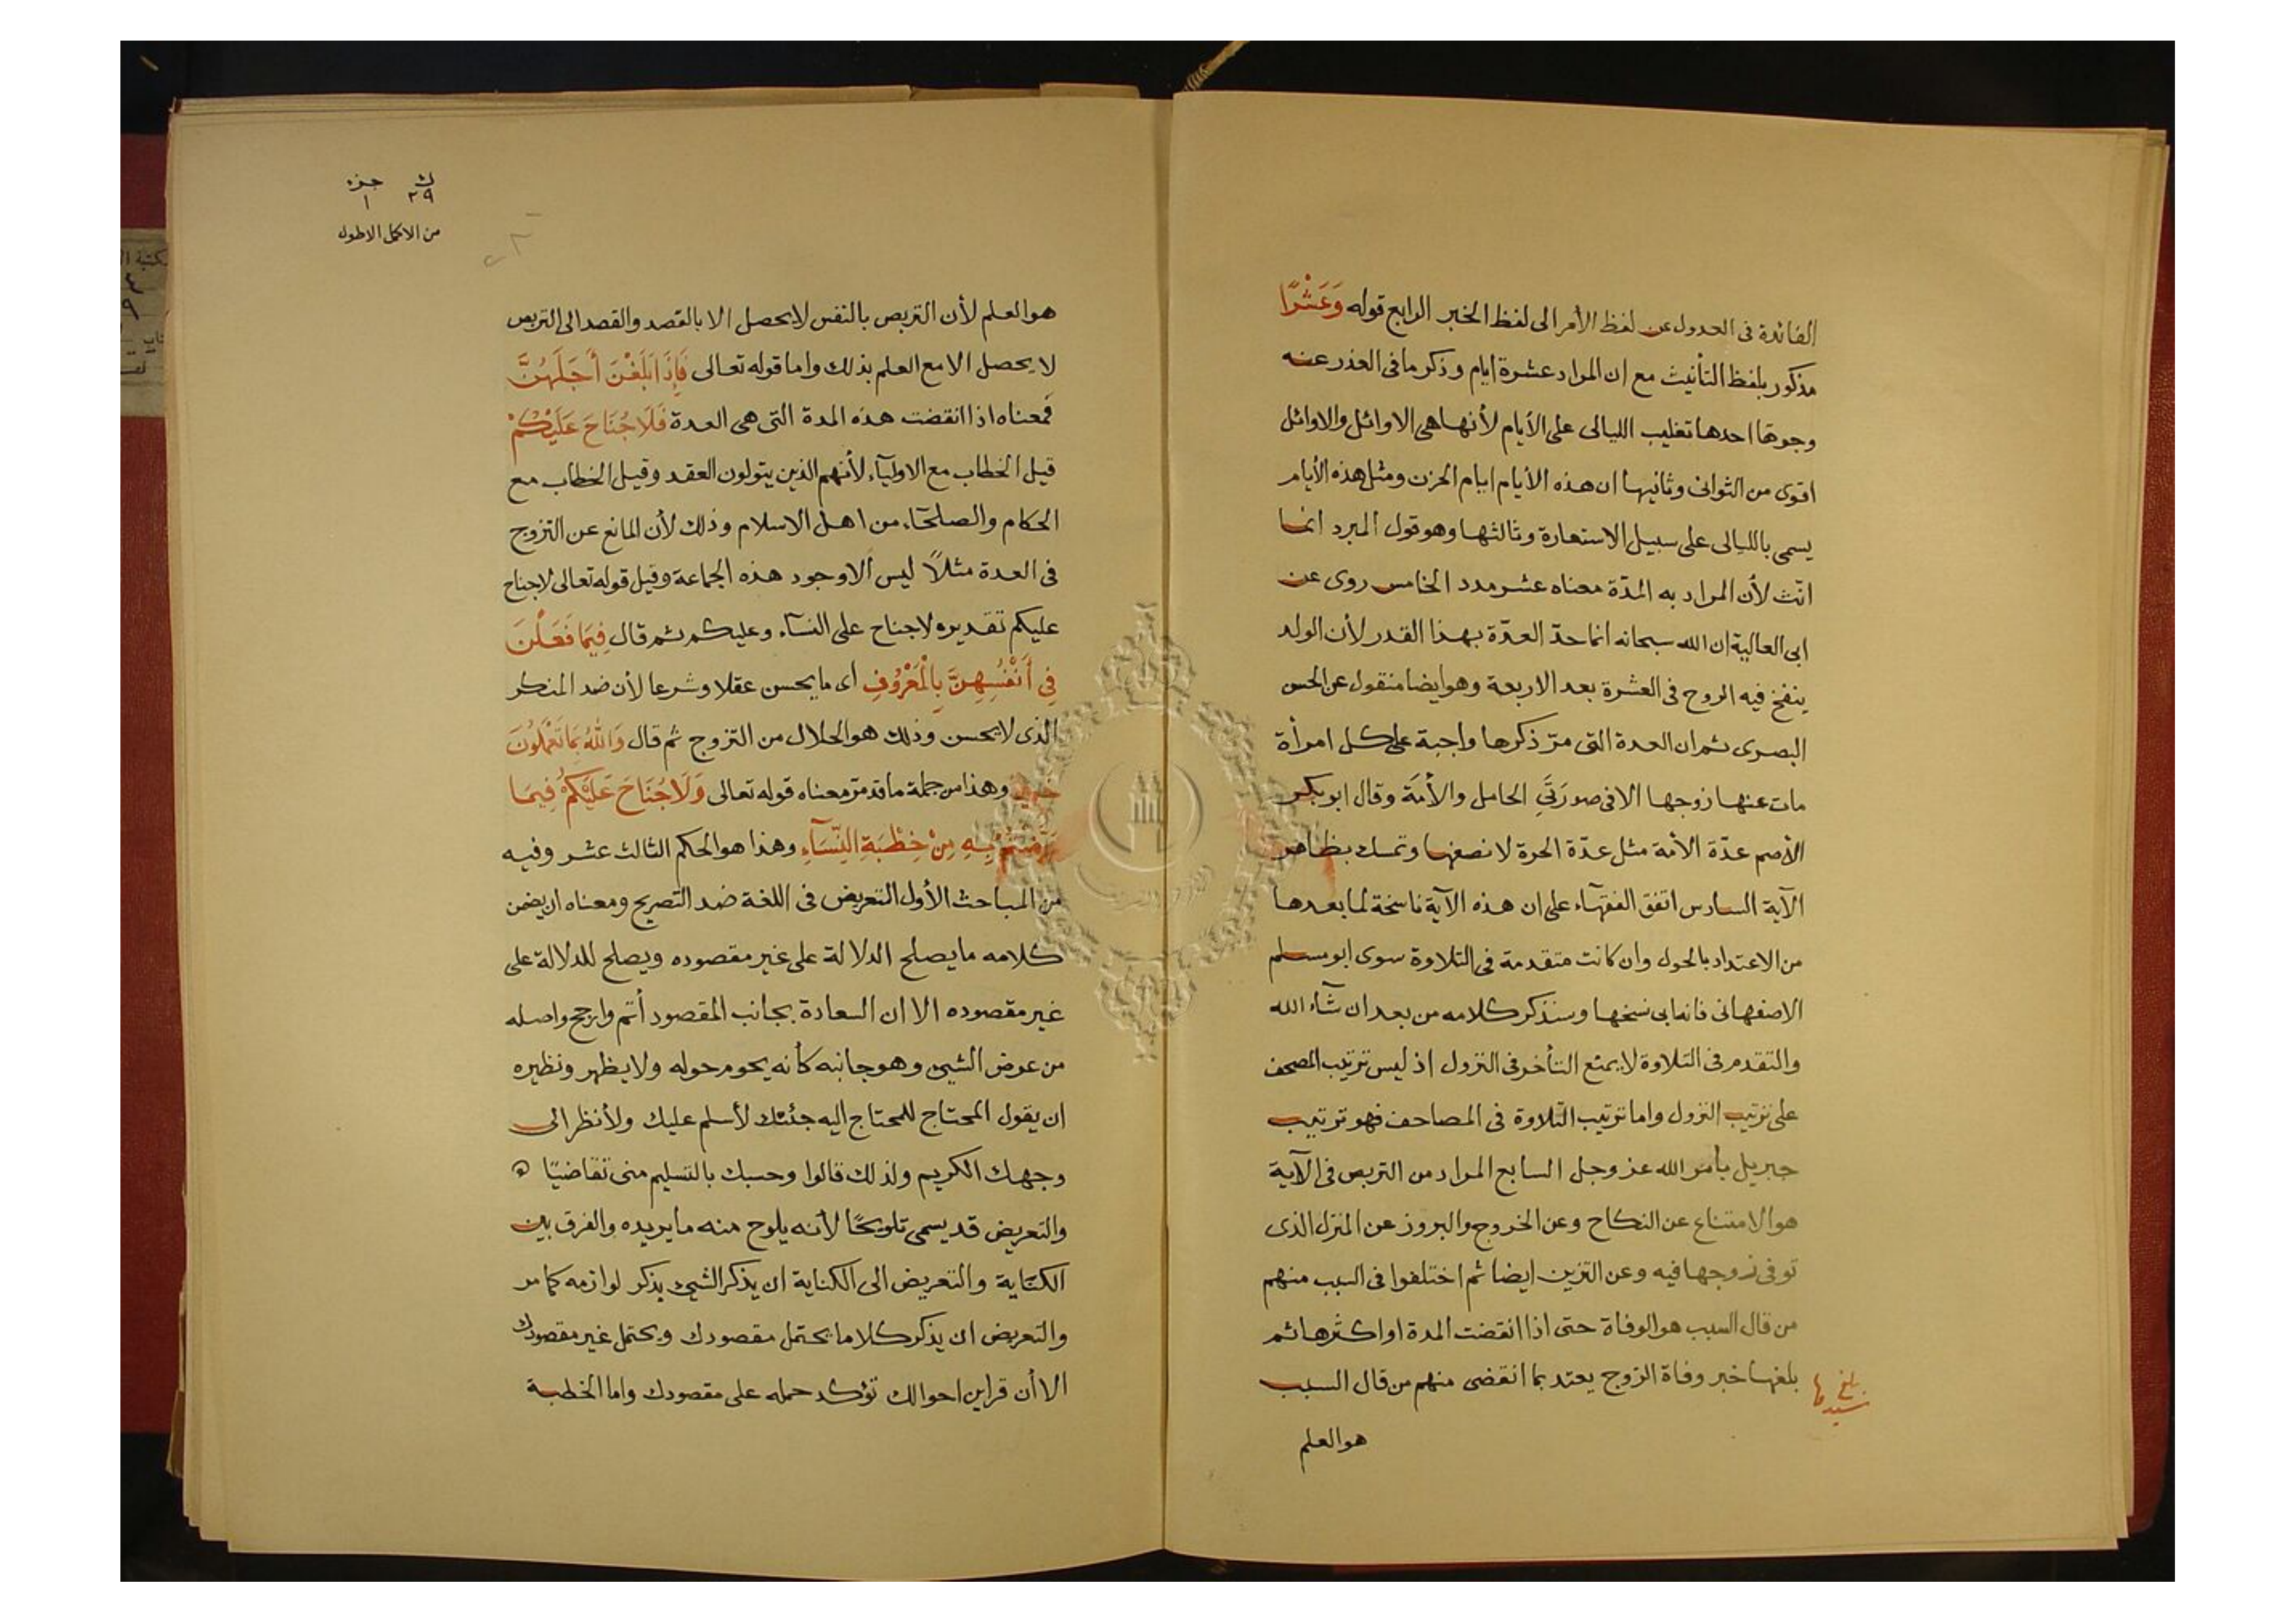 الفائدة فى العدول عن لفظ الأمر الى لفظ الخبر الرابع قوله وَعَشْرًا
مذكور بلفظ التأنيث مع ان المراد عشرة ايام وذكر ما فى العذر عنه
وجوهًا احدها تغليب الليالى على الأيام لأنها هى الاوائل والاوائل
اقوى من الثوانى وثانيها ان هذه الأيام ايام الحزن ومثل هذه الأيام
يسمى بالليالى على سبيل الاستعارة وثالثها وهو قول المبرد انما
انّث لأن المراد به المدّة معناه عشر مدد الخامس روى عن
ابى العالية ان الله سبحانه انما حدّ العدّة بهذا القدر لأن الولد
ينفخ فيه الروح فى العشرة بعد الاربعة وهو ايضا منقول عن الحسن
البصرى ثم ان العدة التى مرّ ذكرها واجبة على كل امرأة
مات عنها زوجها الا فى صورتَيِ الحامل والأمَة وقال ابو بكر
الأصم عدّة الأمة مثل عدّة الحرة لا نصفها وتمسك بظاهر
الآية السادس اتفق الفقهآء على ان هذه الآية ناسخة لما بعدها
من الاعتداد بالحول وان كانت متقدمة فى التلاوة سوى ابو مسلم
الاصفهانى فانه ابى نسخها وسنذكر كلامه من بعد ان شآء الله
والتقدم فى التلاوة لا يمنع التأخر فى النزول اذ ليس ترتيب المصحف
على ترتيب النزول واما ترتيب التلاوة فى المصاحف فهو ترتيب
جبريل بأمر الله عز وجل السابع المراد من التربص فى الآية
هو الامتناع عن النكاح وعن الخروج والبروز عن المنزل الذى
توفى زوجها فيه وعن التزين ايضا ثم اختلفوا فى السبب منهم
من قال السبب هو الوفاة حتى اذا انقضت المدة او اكثرها ثم
بلغها خبر وفاة الزوج يعتد بما انقضى منهم من قال السبب
هو العلم
بلغ
ك ٢٩ جزء ١
من الاكمل الاطول
هو العلم لأن التربص بالنفس لا يحصل الا بالقصد والقصد الى التربص
لا يحصل الا مع العلم بذلك واما قوله تعالى فَإِذَا بَلَغْنَ أَجَلَهُنَّ
فمعناه اذا انقضت هذه المدة التى هى العدة فَلَا جُنَاحَ عَلَيْكُمْ
قيل الخطاب مع الاوليآء لأنهم الذين يتولون العقد وقيل الخطاب مع
الحكام والصلحآء من اهل الاسلام وذلك لأن المانع عن التزوج
فى العدة مثلاً ليس الا وجود هذه الجماعة وقيل قوله تعالى لا جناح
عليكم تقديره لا جناح على النسآء وعليكم ثم قال فِيمَا فَعَلْنَ
فِي أَنْفُسِهِنَّ بِالْمَعْرُوفِ اى ما يحسن عقلا وشرعا لأن ضد المنكر
الذى لا يحسن وذلك هو الحلال من التزوج ثم قال وَاللهُ بِمَا تَعْمَلُونَ
خبير وهذا من جملة ما قد مرّ معناه قوله تعالى وَلَا جُنَاحَ عَلَيْكُمْ فِيمَا
عَرَّضْتُمْ بِهِ مِنْ خِطْبَةِ النِّسَآءِ وهذا هو الحكم الثالث عشر وفيه
من المباحث الأول التعريض فى اللغة ضد التصريح ومعناه ان يضمن
كلامه ما يصلح الدلالة على غير مقصوده ويصلح للدلالة على
غير مقصوده الا ان السعادة بجانب المقصود أتم وارجح واصله
من عوض الشيئ وهو جانبه كأنه يحوم حوله ولا يظهر ونظيره
ان يقول المحتاج للمحتاج اليه جئتك لأسلم عليك ولأنظر الى
وجهك الكريم ولذلك قالوا وحسبك بالتسليم منى تقاضيًا ه
والتعريض قد يسمى تلويحًا لأنه يلوح منه ما يريده والفرق بين
الكتاية والتعريض الى الكناية ان يذكر الشيئ يذكر لوازمه كما مر
والتعريض ان يذكر كلاما يحتمل مقصودك ويحتمل غير مقصودك
الا أن قراين احوالك تؤكد حمله على مقصودك واما الخطبة